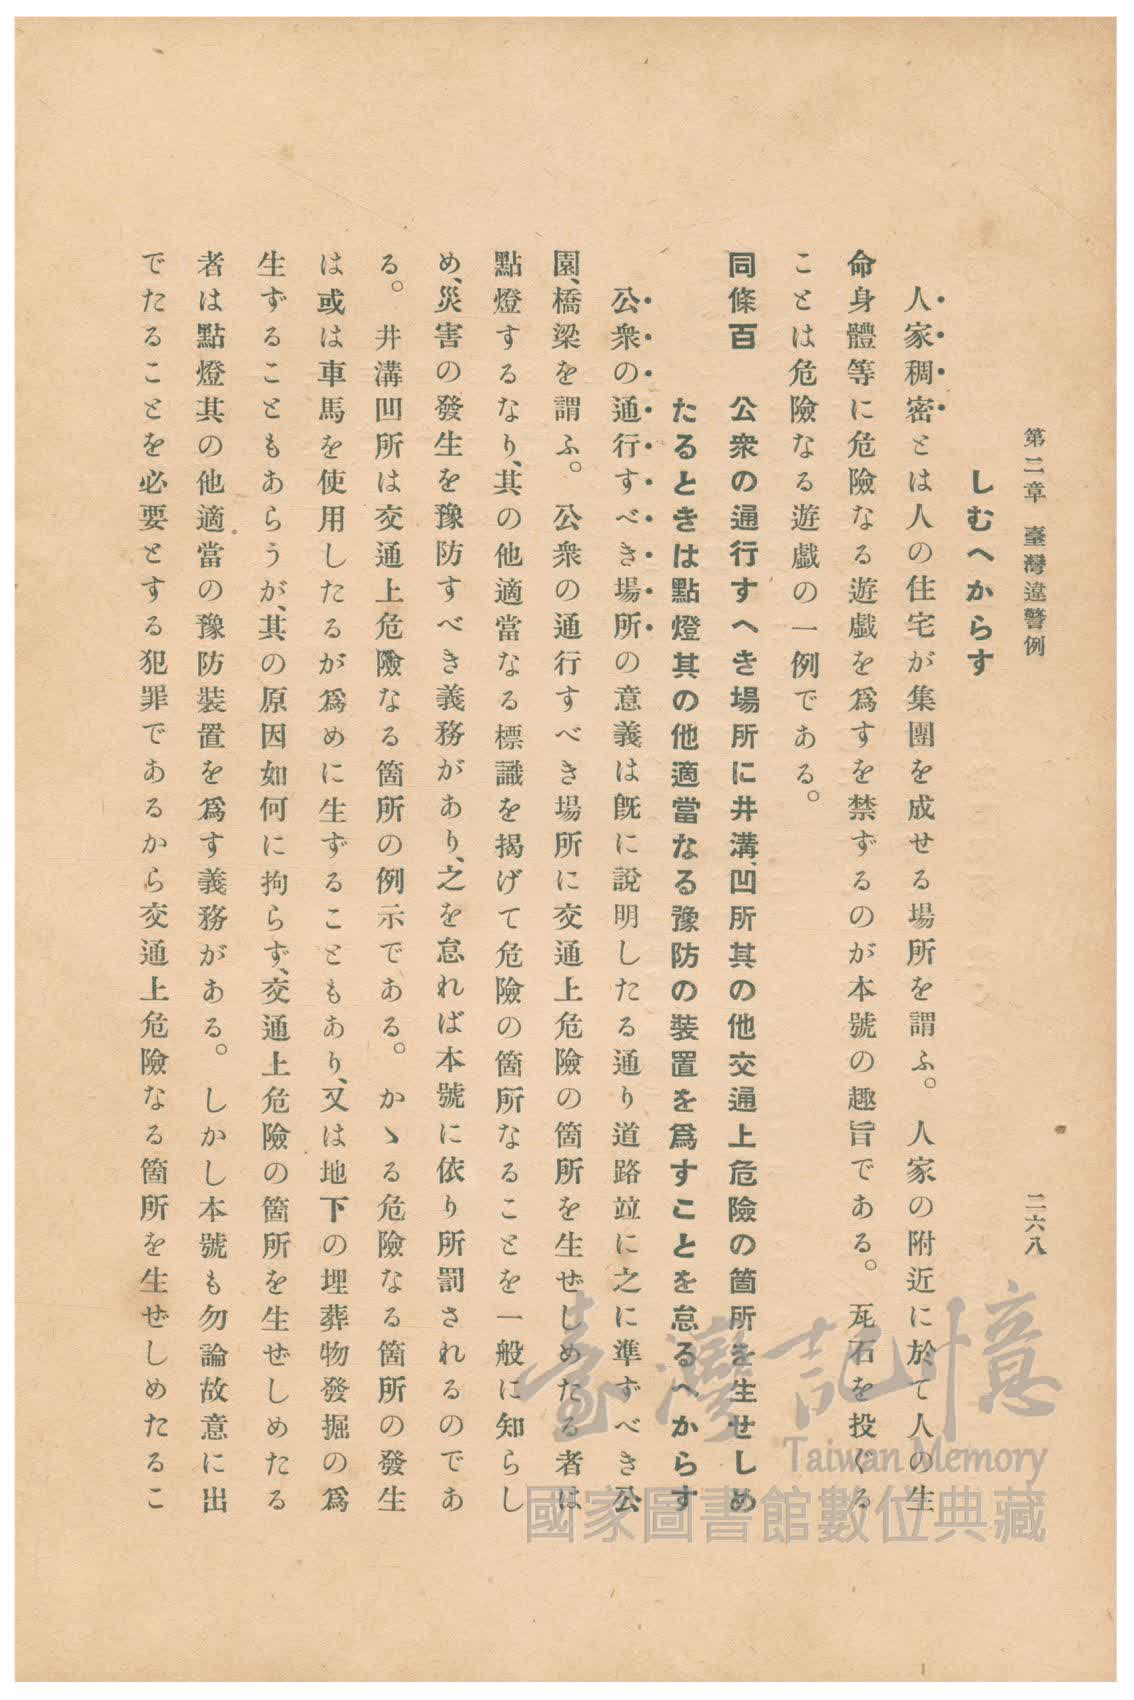 第二章　臺灣違警例
二六八
しむへからす
人家稠密とは人の住宅が集團を成せる場所を謂ふ。人家の附近に於て人の生
命身體等に危險なる遊戲を爲すを禁ずるのが本號の趣旨である。瓦石を投ぐる
ことは危險なる遊戲の一例である。
同條百　公衆の通行すへき場所に井溝、凹所其の他交通上危險の箇所を生せしめ
たるときは點燈其の他適當なる豫防の裝置を爲すことを怠るへからす
公衆の通行すべき場所の意義は既に說明したる通り道路竝に之に準ずべき公
園、橋梁を謂ふ。公衆の通行すべき場所に交通上危險の箇所を生ぜしめたる者は
點燈するなり、其の他適當なる標識を揭げて危險の箇所なることを一般に知らし
め、災害の發生を豫防すべき義務があり、之を怠れば本號に依り所罰されるのであ
る。井溝凹所は交通上危險なる箇所の例示である。かゝる危險なる箇所の發生
は或は車馬を使用したるが爲めに生ずることもあり、又は地下の埋葬物發掘の爲
生ずることもあらうが、其の原因如何に拘らず、交通上危險の箇所を生ぜしめたる
者は點燈其の他適當の豫防裝置を爲す義務がある。しかし本號も勿論故意に出
でたることを必要とする犯罪であるから交通上危險なる箇所を生ぜしめたるこ
臺灣記憶
Taiwan Memory
國家圖書館數位典藏